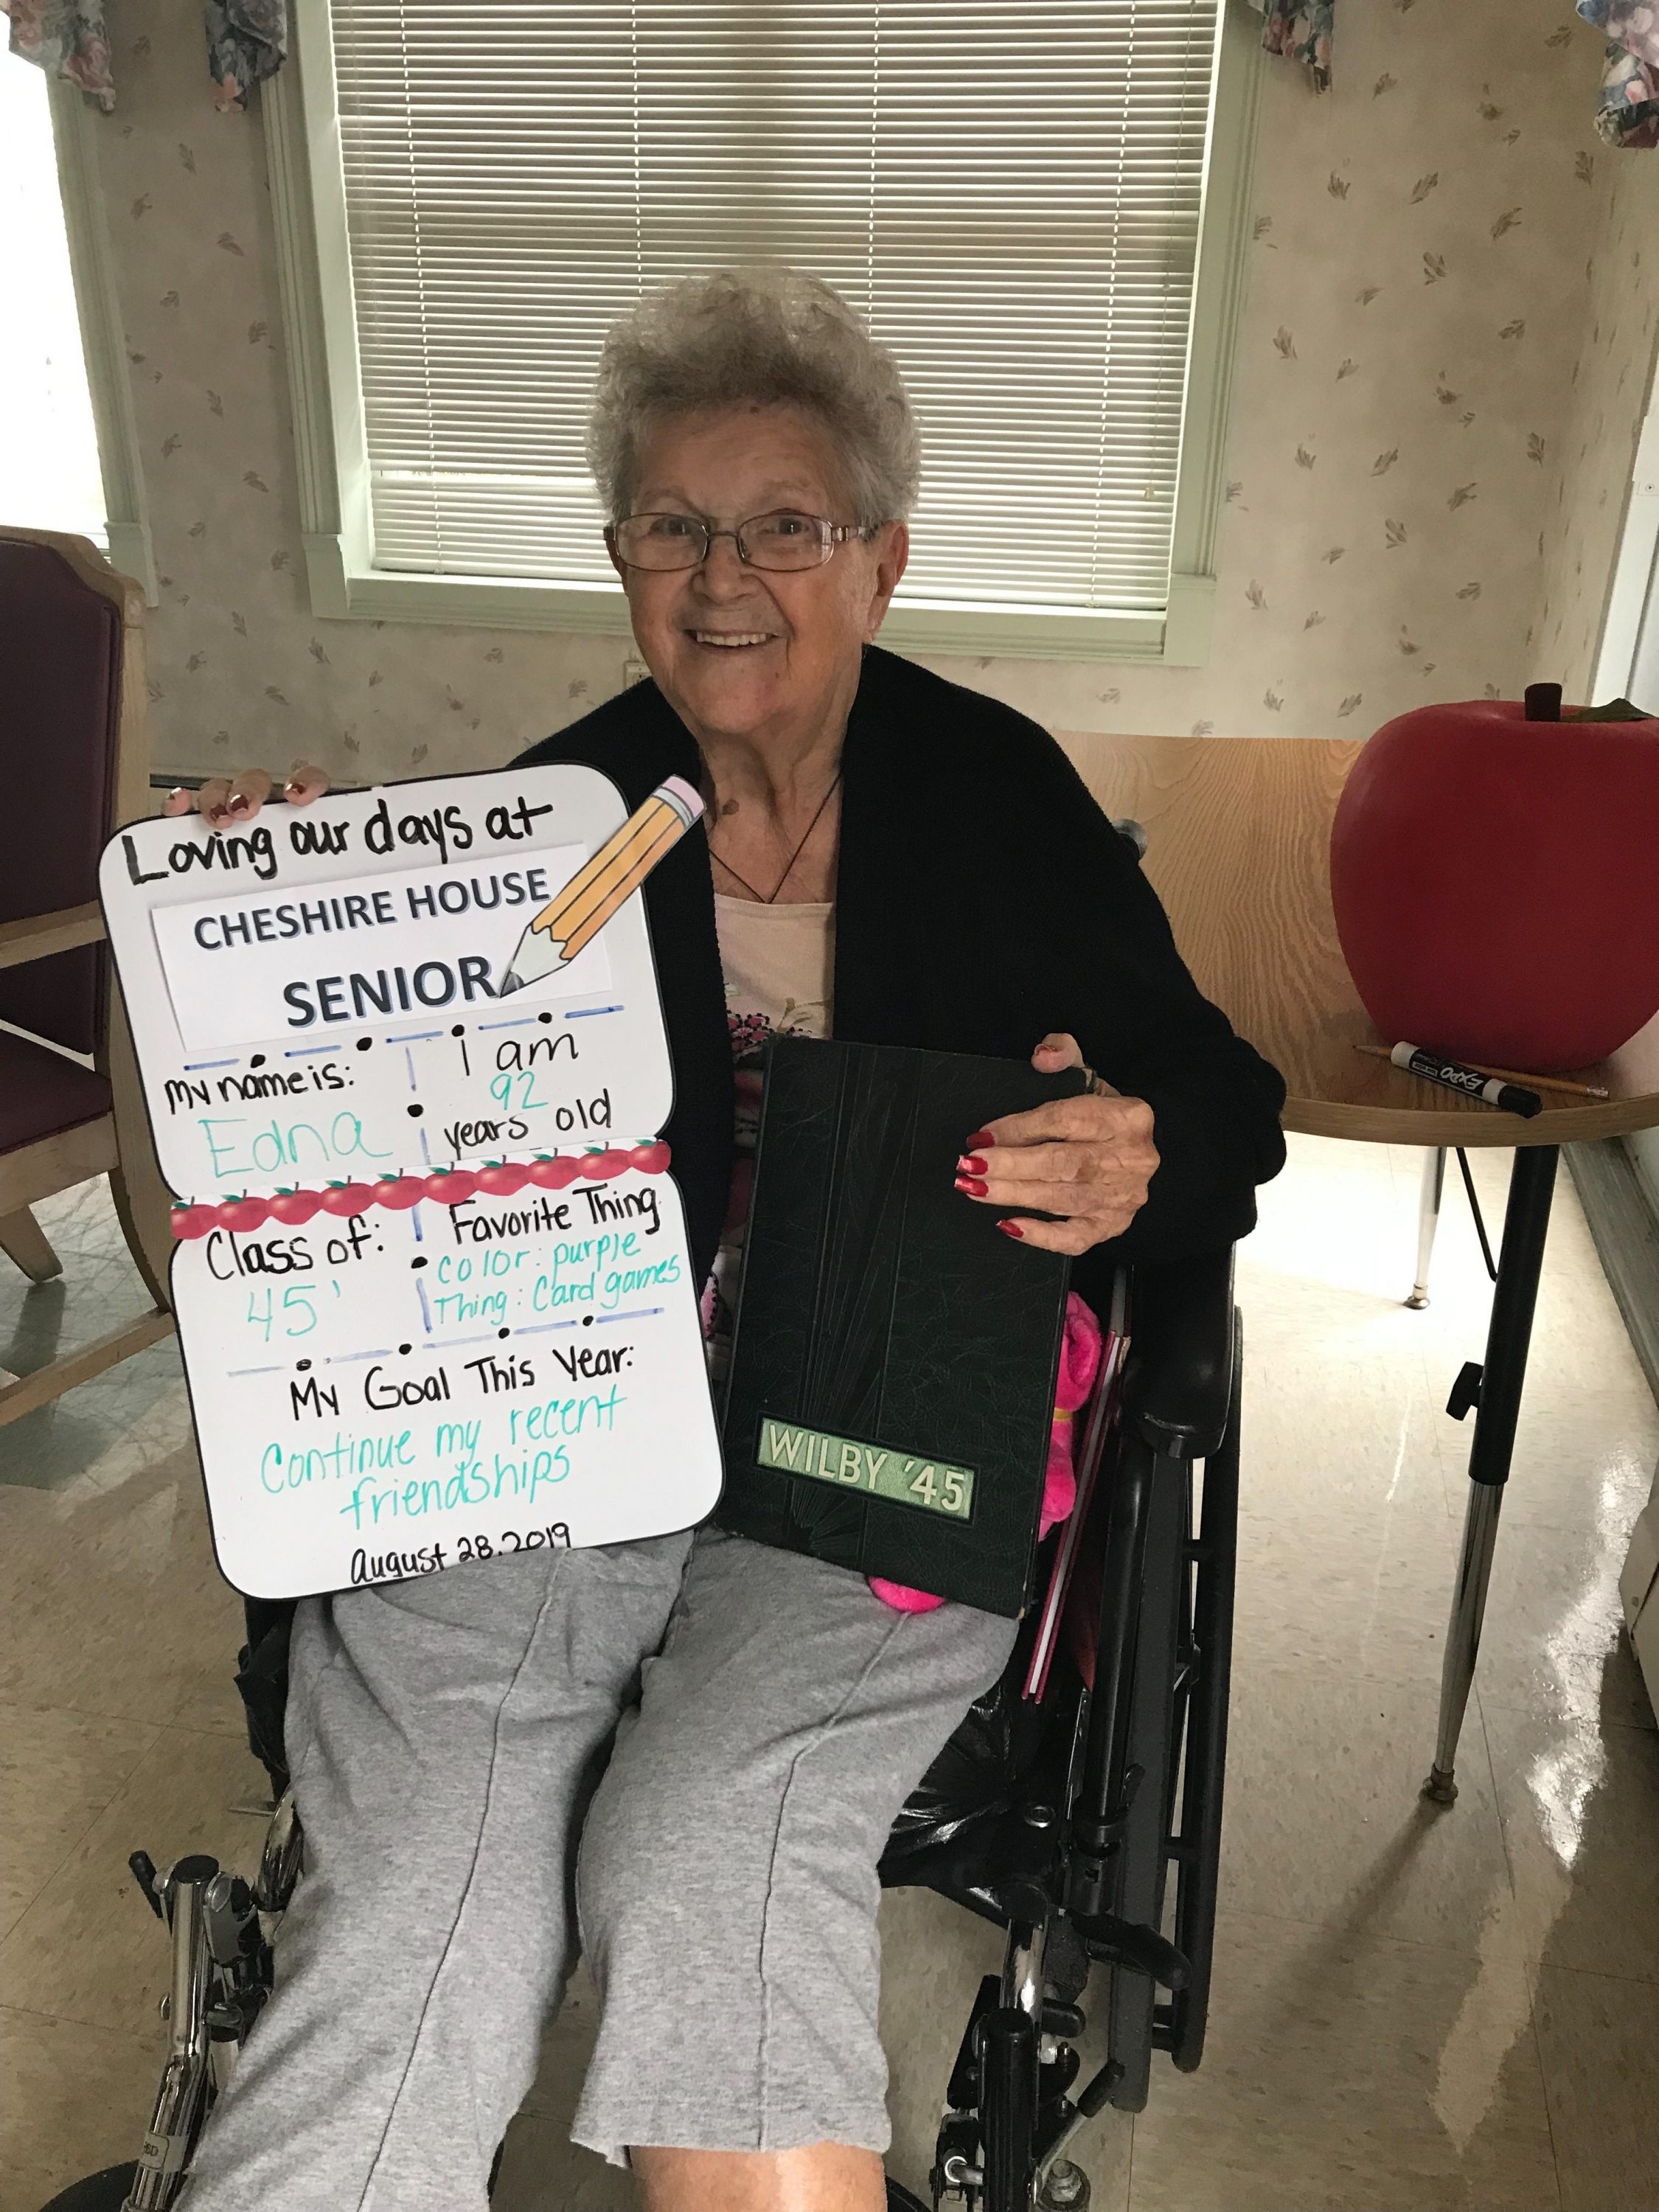 Loving our days at
CHESHIRE HOUSE
SENIOR
my name is:
Edna
i am
92
years old
Class of:
45'
Favorite Thing
Color: purple
Thing: Card games
My Goal This Year:
Continue my recent
friendships
August 28, 2019
WILBY '45
EXPO